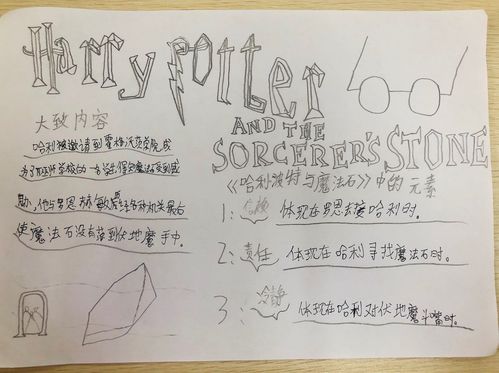 Harry Potter
AND THE
SORCERER'S STONE
大致内容
哈利被邀请到霍格沃茨学院,成
为了巫师学校的一名学生,得知魔法石受到威
胁,他与罗恩、赫敏经各种机关果占
使魔法石没有落到伏地魔手中.
《哈利波特与魔法石》中的元素
1:
体现在罗恩去救哈利时.
2: 责任 体现在哈利寻找魔法石时.
3: 冷静 体现在哈利对伏地魔斗嘴时.